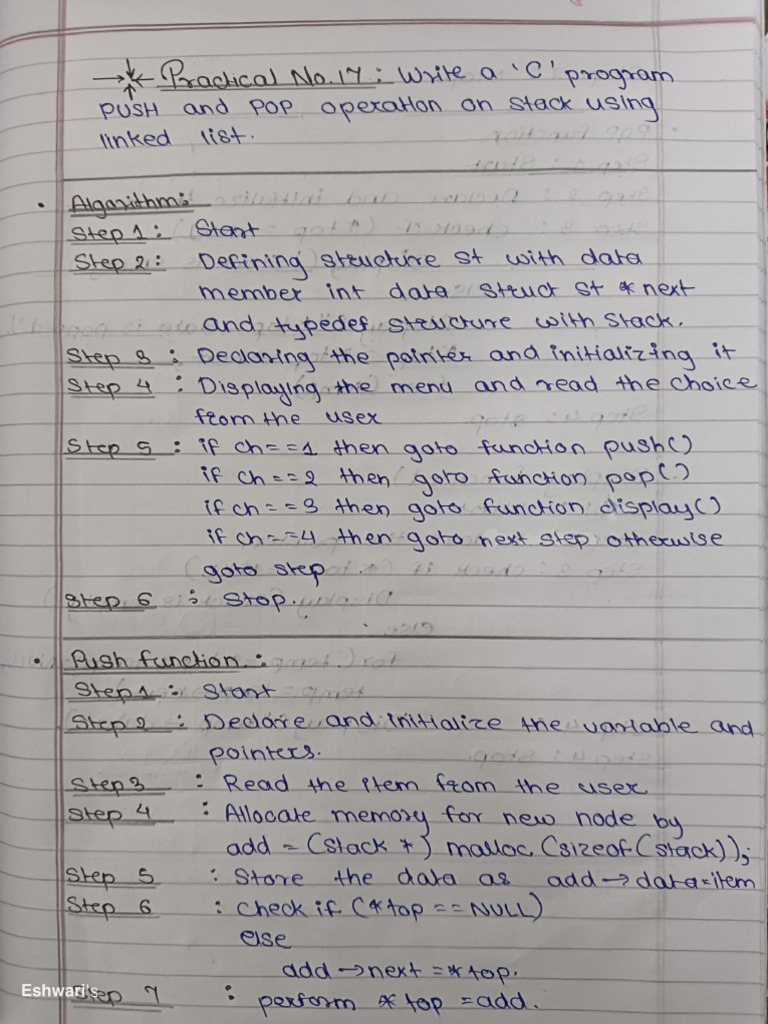 Practical No.17: Write a 'C' program
PUSH and POP operation on stack using
linked list.
• Algorithm:
Step 1: Start
Step 2: Defining structure st with data
member int data struct st * next
and typedef structure with stack.
Step 3 : Declaring the pointer and initializing it
Step 4 : Displaying the menu and read the choice
from the user
Step 5 : if ch==1 then goto function push()
if ch==2 then goto function pop()
if ch==3 then goto function display()
if ch==4 then goto next step otherwise
goto step
Step 6 : Stop.
• Push function :
Step 1 : Start
Step 2 : Declare and initialize the variable and
pointers.
Step 3 : Read the item from the user
Step 4 : Allocate memory for new node by
add = (stack *) malloc (sizeof(stack));
Step 5 : Store the data as add → data=item
Step 6 : check if (*top == NULL)
else
add → next = *top.
Step 7 : perform *top = add.
Eshwari's